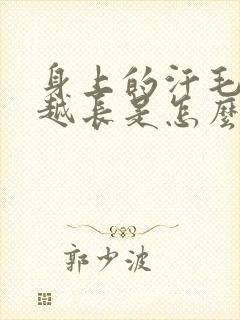 身上的汗毛
越长是怎麽
郭少波